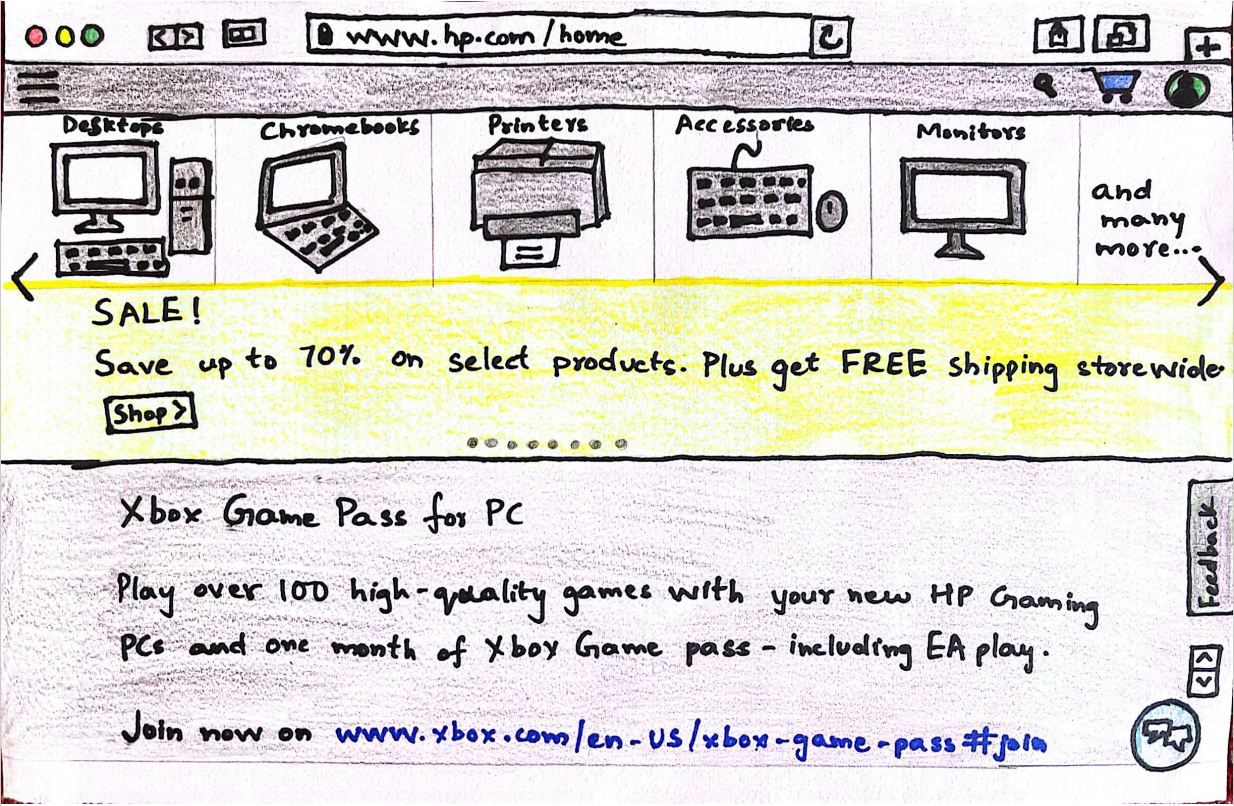 www.hp.com/home
Desktops
Chromebooks
Printers
Accessories
Monitors
and
many
more...
SALE!
Save up to 70% on select products. Plus get FREE shipping storewide.
Shop >
Xbox Game Pass for PC
Play over 100 high-quality games with your new HP Gaming
PCs and one month of Xbox Game pass - including EA play.
Join now on www.xbox.com/en-US/xbox-game-pass#join
Feedback